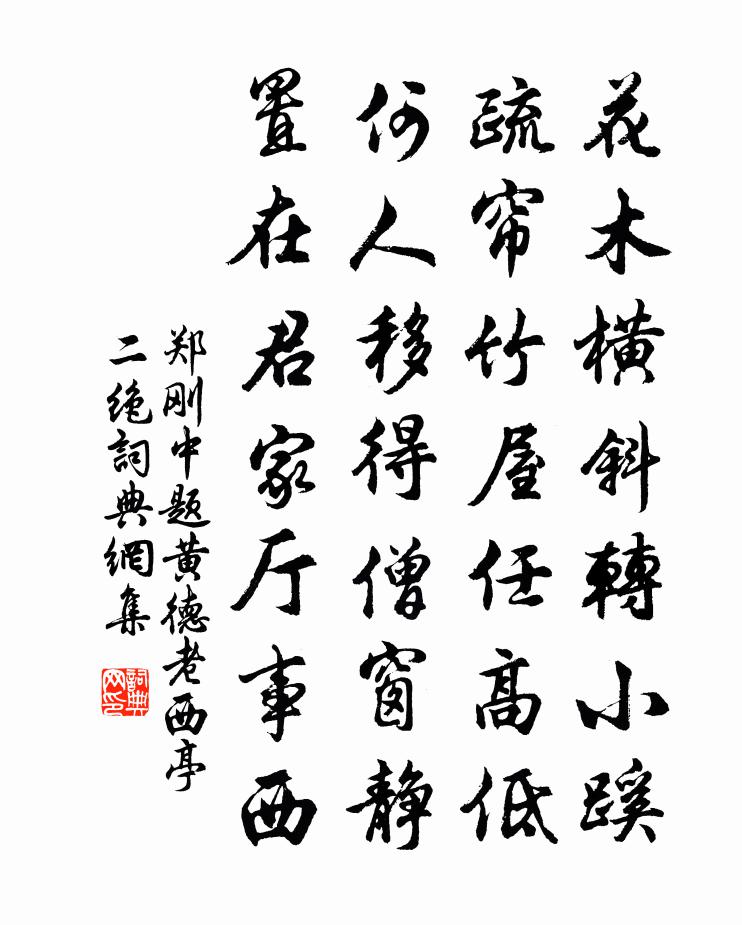 花木橫斜轉小蹊
疏帘竹屋任高低
何人移得僧窗静
置在君家厅事西
郑刚中题黄德老西亭
二绝詞典網集
詞典网印